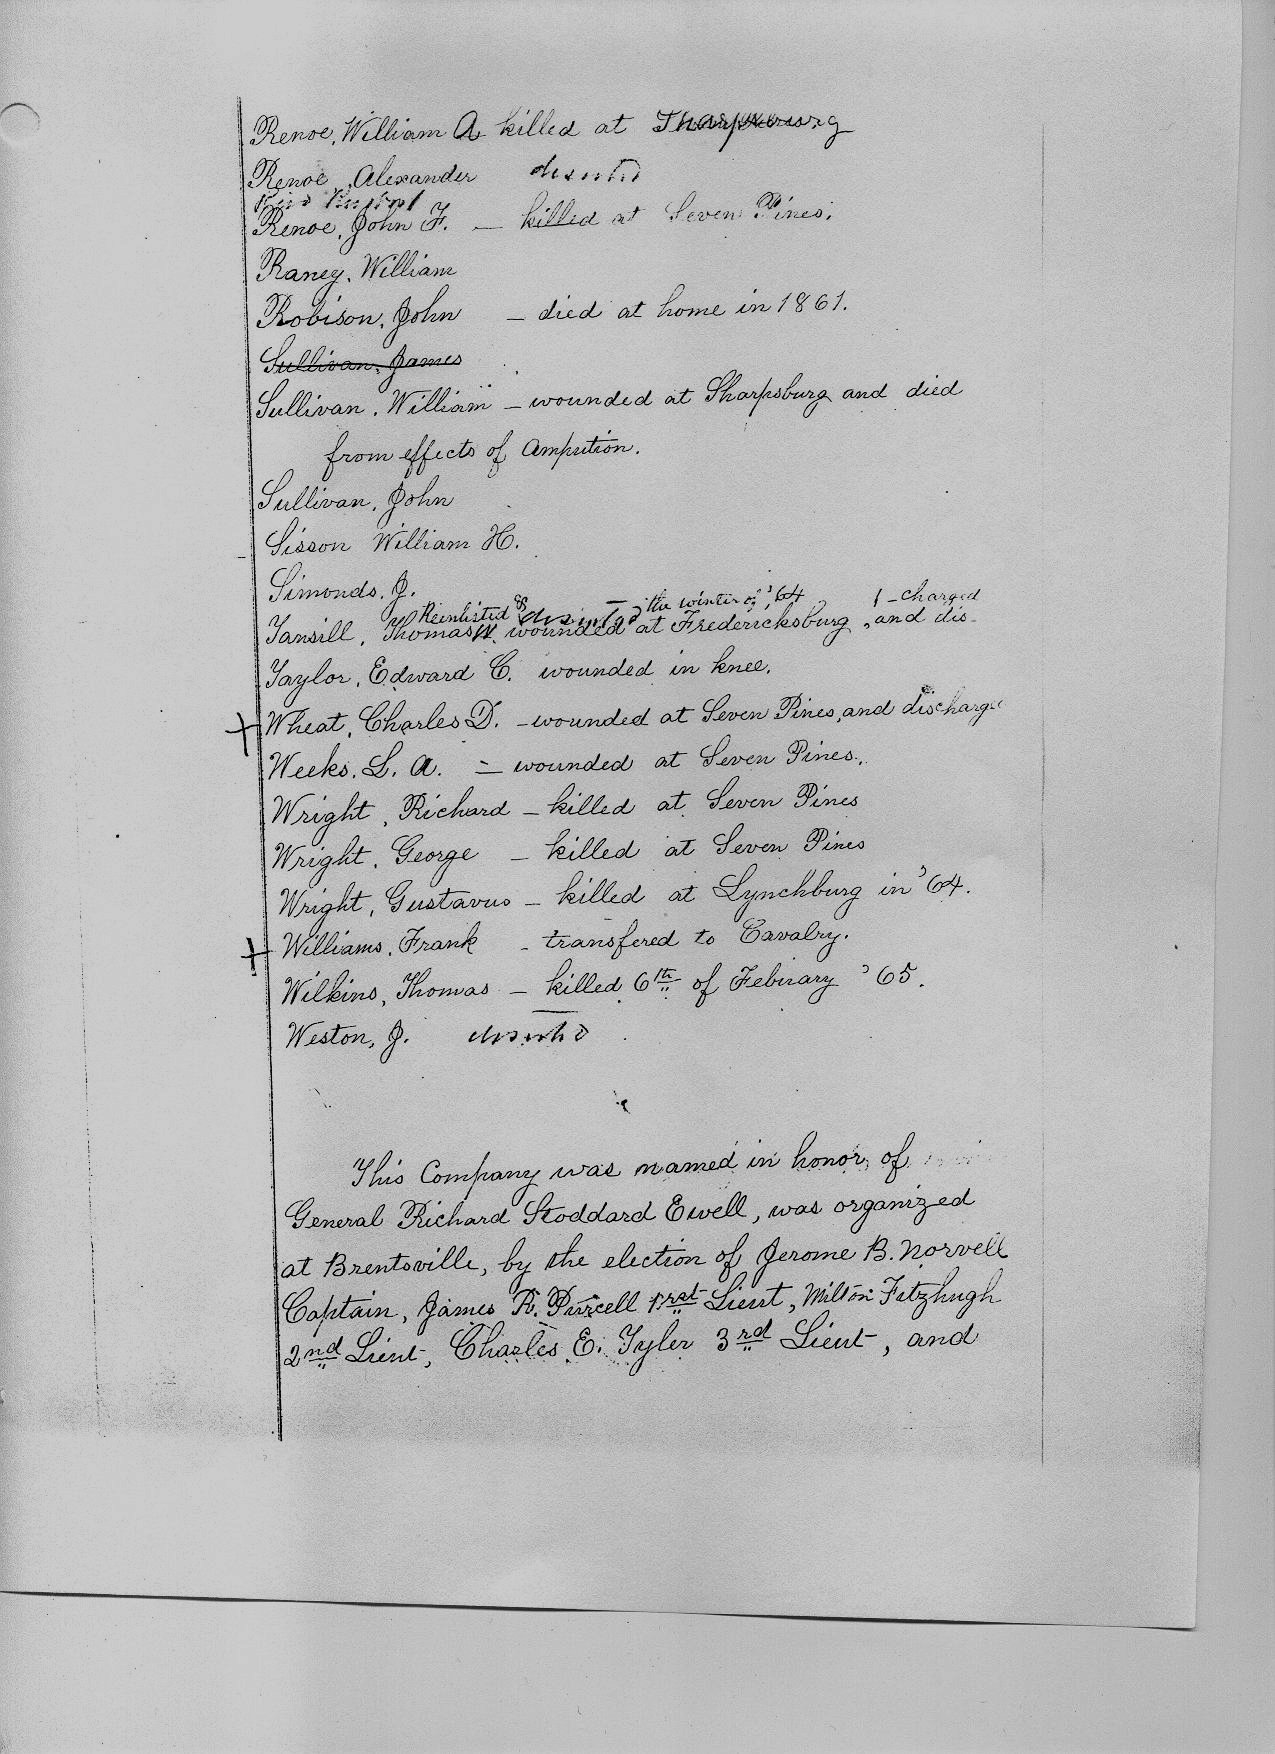 Renoe, William A killed at Sharpsburg
Renoe, Alexander deserted
Renoe, John F. — killed at Seven Pines.
Raney, William
Robison, John — died at home in 1861.
Sullivan, James
Sullivan, William — wounded at Sharpsburg and died
from effects of Ampution.
Sullivan, John
Sisson William H.
Simonds, J.
Reenlisted & deserted the winter of '64 - charged
Tansill, Thomas W. wounded at Fredericksburg, and dis-
Taylor, Edward C. wounded in knee.
+ Wheat, Charles D. - wounded at Seven Pines, and discharge
Weeks, L. A. — wounded at Seven Pines.
Wright, Richard — killed at Seven Pines
Wright, George — killed at Seven Pines
Wright, Gustavus — killed at Lynchburg in '64.
+ Williams, Frank - transfered to Cavalry.
Wilkins, Thomas — killed 6th of Febuary '65.
Weston, J. deserted
This Company was named in honor of
General Richard Stoddard Ewell, was organized
at Brentsville, by the election of Jerome B. Norvell
Captain, James R. Purcell 1rst Lieut, Milton Fitzhugh
2nd Lieut, Charles E. Tyler 3rd Lieut, and